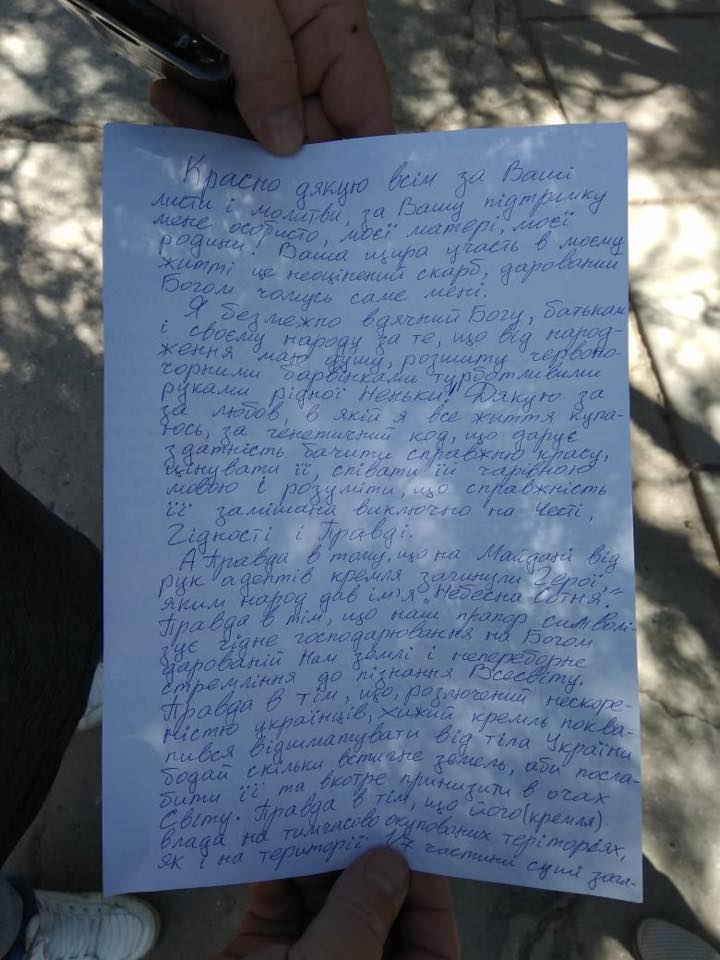 Красно дякую всім за Ваші
листи і молитви, за Вашу підтримку
мене особисто, моєї матері, моєї
родини. Ваша щира участь в моєму
житті це неоцінений скарб, дарований
Богом чомусь саме мені.
Я безмежно вдячний Богу, батькам
і своєму народу за те, що від народ-
ження маю душу, розшиту червоно-
чорними барвінками турботливими
руками рідної Неньки. Дякую за
за любов, в якій я все життя купа-
юсь, за генетичний код, що дарує
здатність бачити справжню красу,
цінувати її, співати їй чарівною
мовою і розуміти, що справжність
її замішана виключно на Честі,
Гідності і Правді.
А Правда в тому, що на Майдані від
рук адептів кремля загинули Герої,
яким народ дав ім'я „Небесна Сотня".
Правда в тім, що наш прапор символі-
зує гідне господарювання на Богом
дарованій Нам землі і непереборне
стремління до пізнання Всесвіту.
Правда в тім, що, розлючений нескоре-
ністю українців, хижий кремль поква-
пився відшматувати від тіла України
бодай скільки встигне земель, аби посла-
бити її та вкотре принизити в очах
Світу. Правда в тім, що його (кремля)
влада на тимчасово окупованих теріторіях,
як і на території 1/7 частини суші загл-